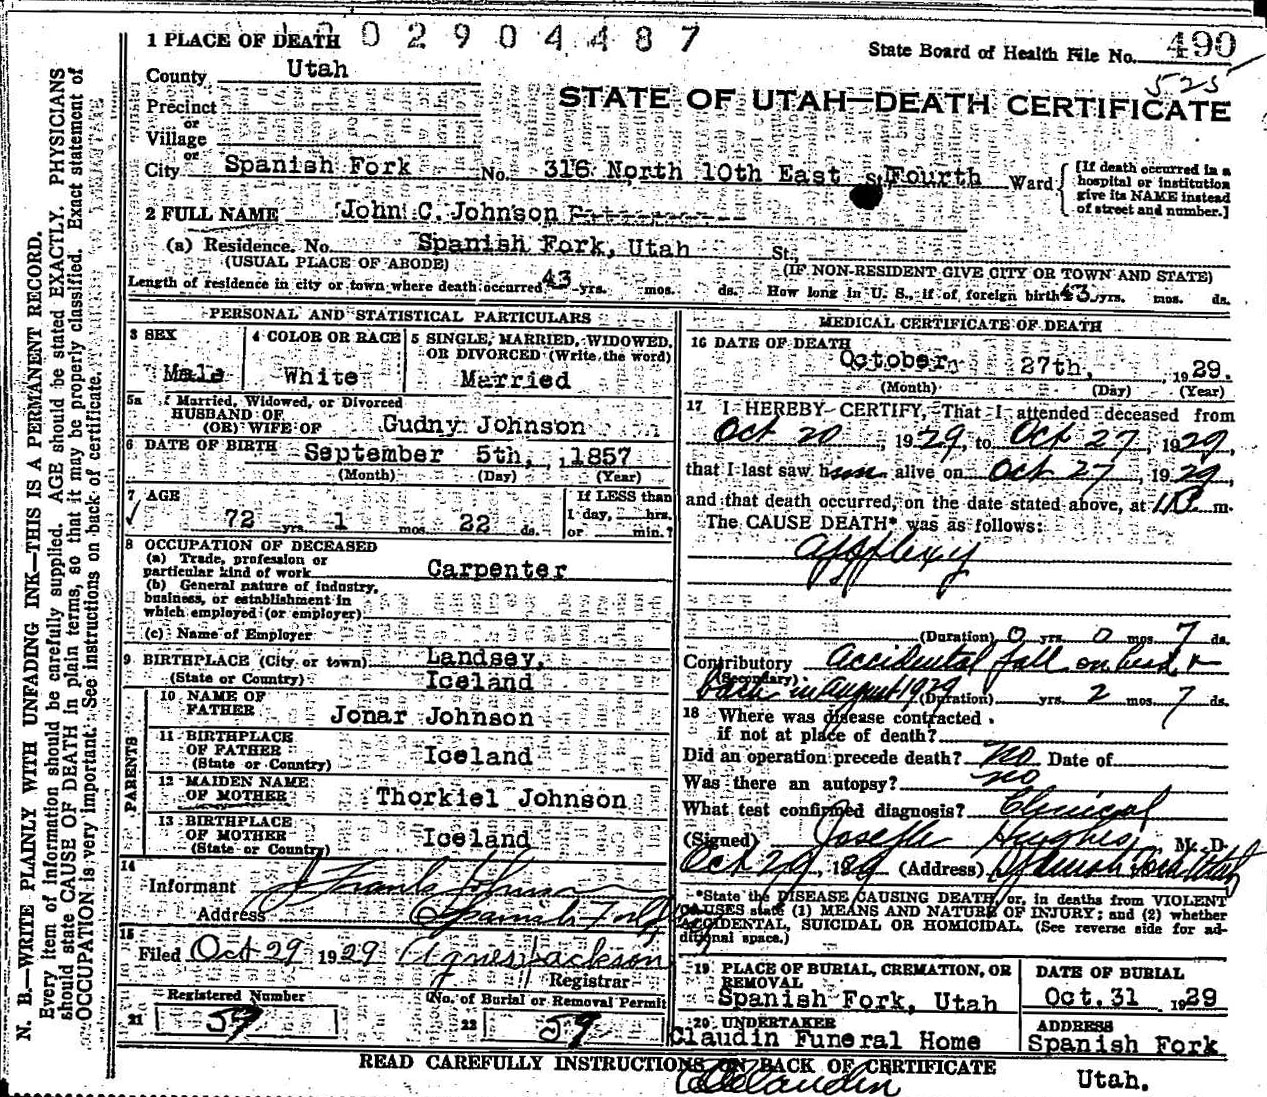 02904487
1 PLACE OF DEATH
State Board of Health File No. 490
525
County Utah
STATE OF UTAH—DEATH CERTIFICATE
Precinct
or
Village
or
City Spanish Fork No. 316 North 10th East St. Fourth Ward
[If death occurred in a
hospital or institution
give its NAME instead
of street and number.]
2 FULL NAME John C. Johnson
(a) Residence. No. Spanish Fork, Utah St.
(USUAL PLACE OF ABODE) (IF NON-RESIDENT GIVE CITY OR TOWN AND STATE)
Length of residence in city or town where death occurred 43 yrs. mos. ds. How long in U. S., if of foreign birth 43 yrs. mos. ds.
PERSONAL AND STATISTICAL PARTICULARS
3 SEX
Male
4 COLOR OR RACE
White
5 SINGLE, MARRIED, WIDOWED,
OR DIVORCED (Write the word)
Married
5a If Married, Widowed, or Divorced
HUSBAND OF
(OR) WIFE OF Gudny Johnson
6 DATE OF BIRTH September 5th, 1857
(Month) (Day) (Year)
7 AGE
72 yrs. 1 mos. 22 ds.
If LESS than
1 day, hrs.
or min.?
8 OCCUPATION OF DECEASED
(a) Trade, profession or
particular kind of work Carpenter
(b) General nature of industry,
business, or establishment in
which employed (or employer)
(c) Name of Employer
9 BIRTHPLACE (City or town) Landsey,
(State or Country) Iceland
PARENTS
10 NAME OF
FATHER Jonar Johnson
11 BIRTHPLACE
OF FATHER Iceland
(State or Country)
12 MAIDEN NAME
OF MOTHER Thorkiel Johnson
13 BIRTHPLACE
OF MOTHER Iceland
(State or Country)
14
Informant J Frank Johnson
Address Spanish Fork
15
Filed Oct 29 1929 Agnes Jackson
Registrar
Registered Number
21 59
No. of Burial or Removal Permit
22 59
MEDICAL CERTIFICATE OF DEATH
16 DATE OF DEATH
October 27th, 1929.
(Month) (Day) (Year)
17 I HEREBY CERTIFY, That I attended deceased from
Oct 20, 1929, to Oct 27, 1929,
that I last saw him alive on Oct 27, 1929,
and that death occurred, on the date stated above, at m.
The CAUSE DEATH* was as follows:
Apoplexy
(Duration) 0 yrs. 0 mos. 7 ds.
Contributory Accidental fall on head +
(Secondary)
back in August 1929 (Duration) yrs. 2 mos. 7 ds.
18 Where was disease contracted
if not at place of death?
Did an operation precede death? no Date of
Was there an autopsy? no
What test confirmed diagnosis? Clinical
(Signed) Joseph Hughes, M. D.
Oct 29, 1929 (Address) Spanish Fork Utah
*State the DISEASE CAUSING DEATH, or, in deaths from VIOLENT
CAUSES state (1) MEANS AND NATURE OF INJURY; and (2) whether
ACCIDENTAL, SUICIDAL OR HOMICIDAL. (See reverse side for ad-
ditional space.)
19 PLACE OF BURIAL, CREMATION, OR
REMOVAL
Spanish Fork, Utah
DATE OF BURIAL
Oct. 31 1929
20 UNDERTAKER
Claudin Funeral Home
ADDRESS
Spanish Fork
Utah.
READ CAREFULLY INSTRUCTIONS ON BACK OF CERTIFICATE
Claudin
N. B.—WRITE PLAINLY WITH UNFADING INK—THIS IS A PERMANENT RECORD.
Every item of information should be carefully supplied. AGE should be stated EXACTLY. PHYSICIANS
should state CAUSE OF DEATH in plain terms, so that it may be properly classified. Exact statement of
OCCUPATION is very important. See instructions on back of certificate.